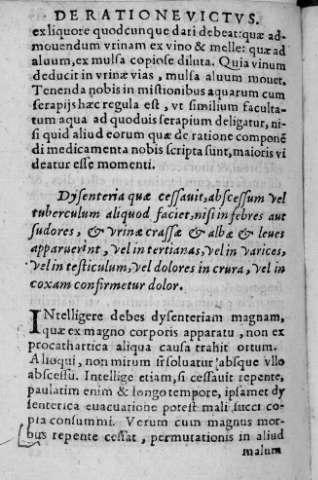 DE RATIONE VICTVS.
ex liquore quodcunque dari debeat: quæ ad-
mouendum vrinam ex vino & melle: quæ ad
aluum, ex mulsa copiose diluta. Quia vinum
deducit in vrinæ vias, mulsa aluum mouet.
Tenenda nobis in mistionibus aquarum cum
serapijs hæc regula est, vt similium faculta-
tum aqua ad quoduis serapium deligatur, ni-
si quid aliud eorum quæ de ratione componē
di medicamenta nobis scripta sunt, maioris vi
deatur esse momenti.
Dysenteria quæ cessauit, abscessum vel
tuberculum aliquod faciet, nisi in febres aut
sudores, & vrinæ crassæ & albæ & leues
apparuerint, vel in tertianas, vel in varices,
vel in testiculum, vel dolores in crura, vel in
coxam confirmetur dolor.
INtelligere debes dysenteriam magnam,
quæ ex magno corporis apparatu, non ex
procathartica aliqua causa trahit ortum.
Alioqui, non mirum si soluatur absque vllo
abscessu. Intellige etiam, si cessauit repente,
paulatim enim & longo tempore, ipsamet dy
senterica euacuatione potest mali succi co-
pia consummi. Verum cum magnus mor-
bus repente cessat, permutationis in aliud
malum